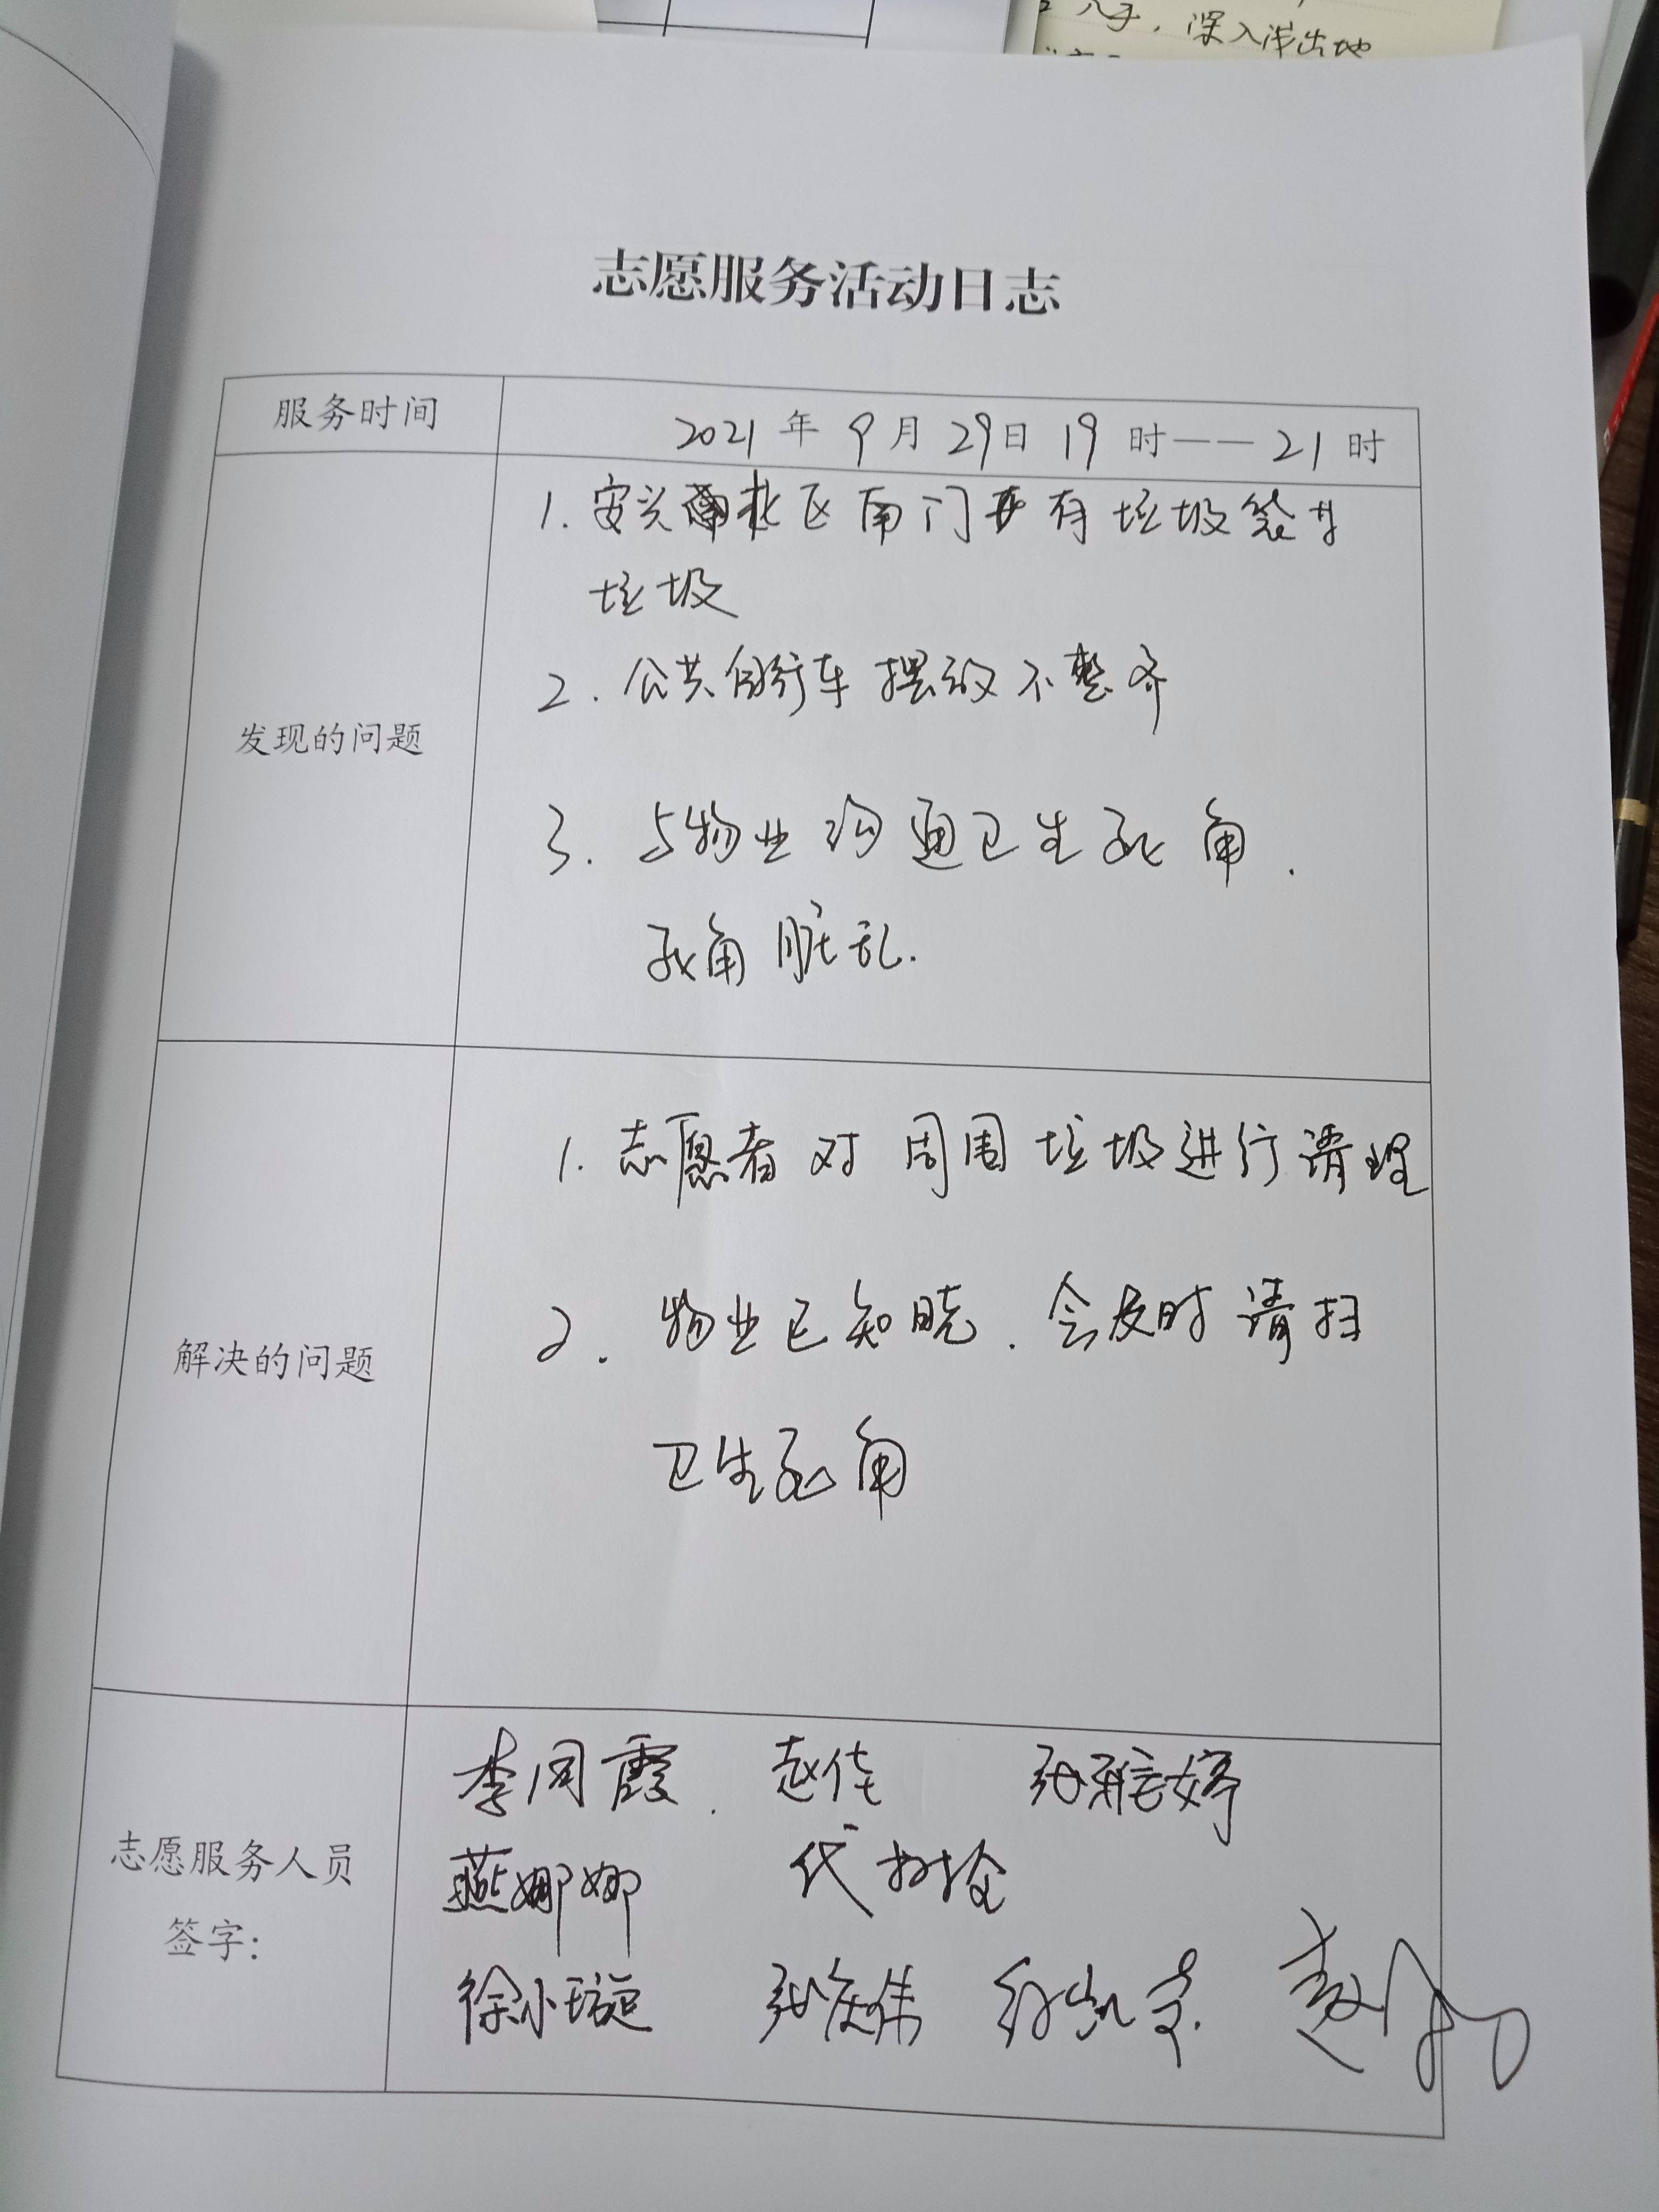 入手，深入浅出地
志愿服务活动日志
服务时间
2021年9月29日19时——21时
发现的问题
1.安兴北区南门有垃圾袋等
垃圾
2.公共自行车摆放不整齐
3.与物业沟通卫生死角.
死角脏乱.
解决的问题
1.志愿者对周围垃圾进行清理
2.物业已知晓.会及时清扫
卫生死角
志愿服务人员
签字：
李同霞. 赵佳 张雅婷
燕娜娜
徐小璇